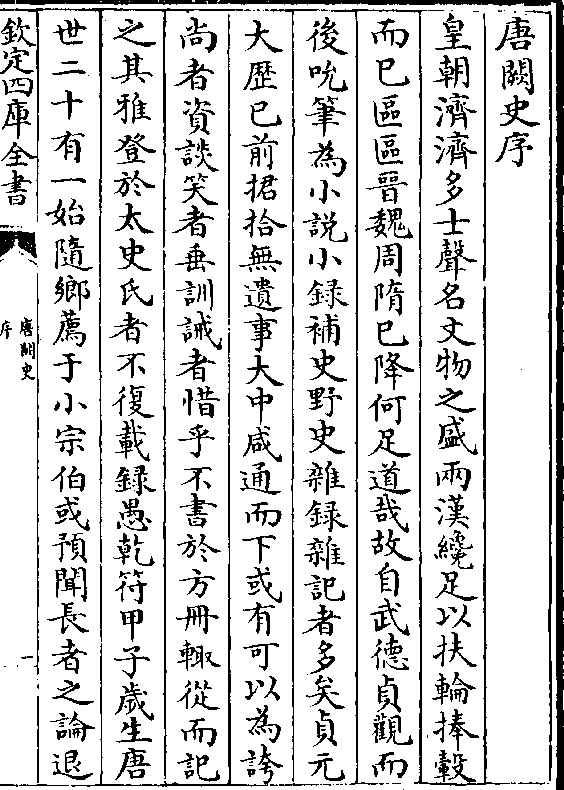 唐闕史序
皇朝濟濟多士聲名文物之盛兩漢纔足以扶輪捧轂
而已區區晉魏周隋已降何足道哉故自武德貞觀而
後吮筆為小説小録補史野史雜録雜記者多矣貞元
大歴已前捃拾無遺事大中咸通而下或有可以為誇
尚者資談笑者垂訓誡者惜乎不書於方冊輙從而記
之其雅登於太史氏者不復載録愚乾符甲子歲生唐
世二十有一始隨鄉薦于小宗伯或預聞長者之論退
欽定四庫全書
唐闕史
序
一